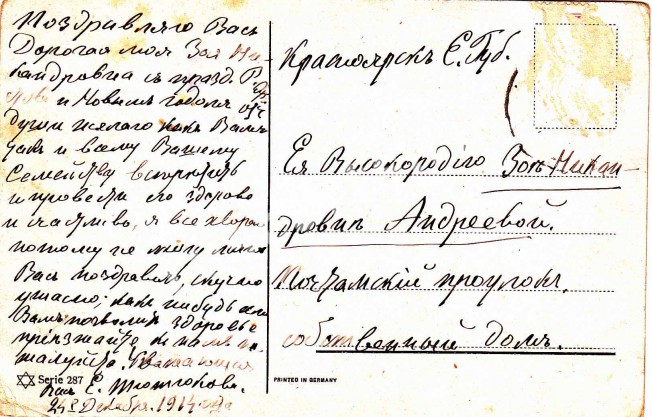 Поздравляю Васъ
Дорогая моя Зоя Ни-
кандровна съ празд. Р.
и Новымъ годомъ отъ
души желаю какъ Вамъ
такъ и всему Вашему
Семейству встрѣтить
и провести его здорово
и счастливо, я все хвораю
потому не могу лично
Васъ поздравить, скучаю
ужасно; какъ нибудь если
Вамъ позволитъ здоровье
пріѣзжайте къ намъ по-
жалуйста. Уважающая
Васъ Е.
24го Декабря 1914 года
Serie 287
Красноярскъ Е. Губ.
Ея Высокородію Зоѣ Никан-
дровнѣ Андреевой.
Почтамскій проулокъ.
собственный домъ.
PRINTED IN GERMANY